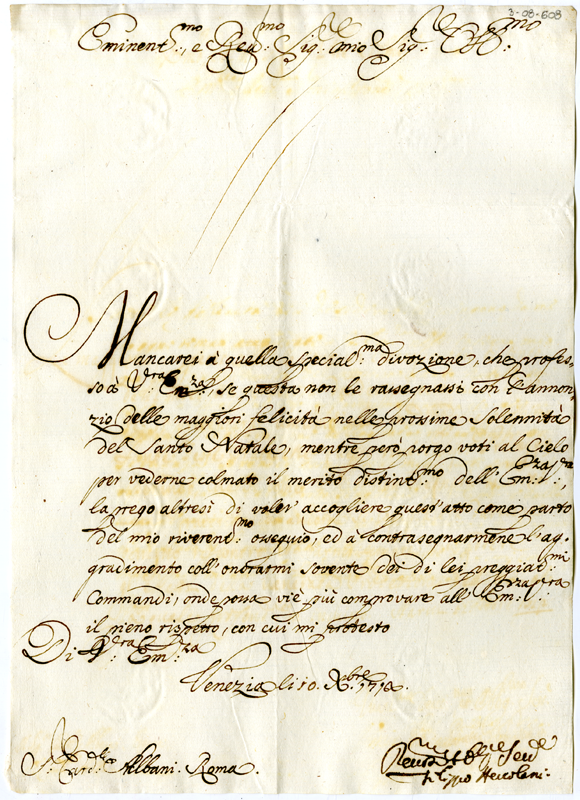 3-08-608
Eminent:mo, e Reu:mo Sig: mio Sig: 
Mancarei à quella special:ma divozione, che profes-
so à V:ra Em:za, se questa non le rassegnassi con l'annon-
zio delle maggiori felicità nelle prossime Solennità
del Santo Natale, mentre però porgo voti al Cielo
per vederne colmato il merito distint:mo dell'Em:za V:ra,
la prego altresì di voler' accogliere quest'atto come parto
del mio riverent:mo ossequio, ed à contrasegnarmene l'ag-
gradimento coll'onorarmi sovente dei di lei preggiat:mi
Commandi, onde possa viè più comprovare all'Em:za V:ra
il pieno rispetto, con cui mi protesto
Di V:ra Em:za
Venezia li 10. Xbre 1718.
S: Card:le Albani. Roma.
Filippo Hercolani.